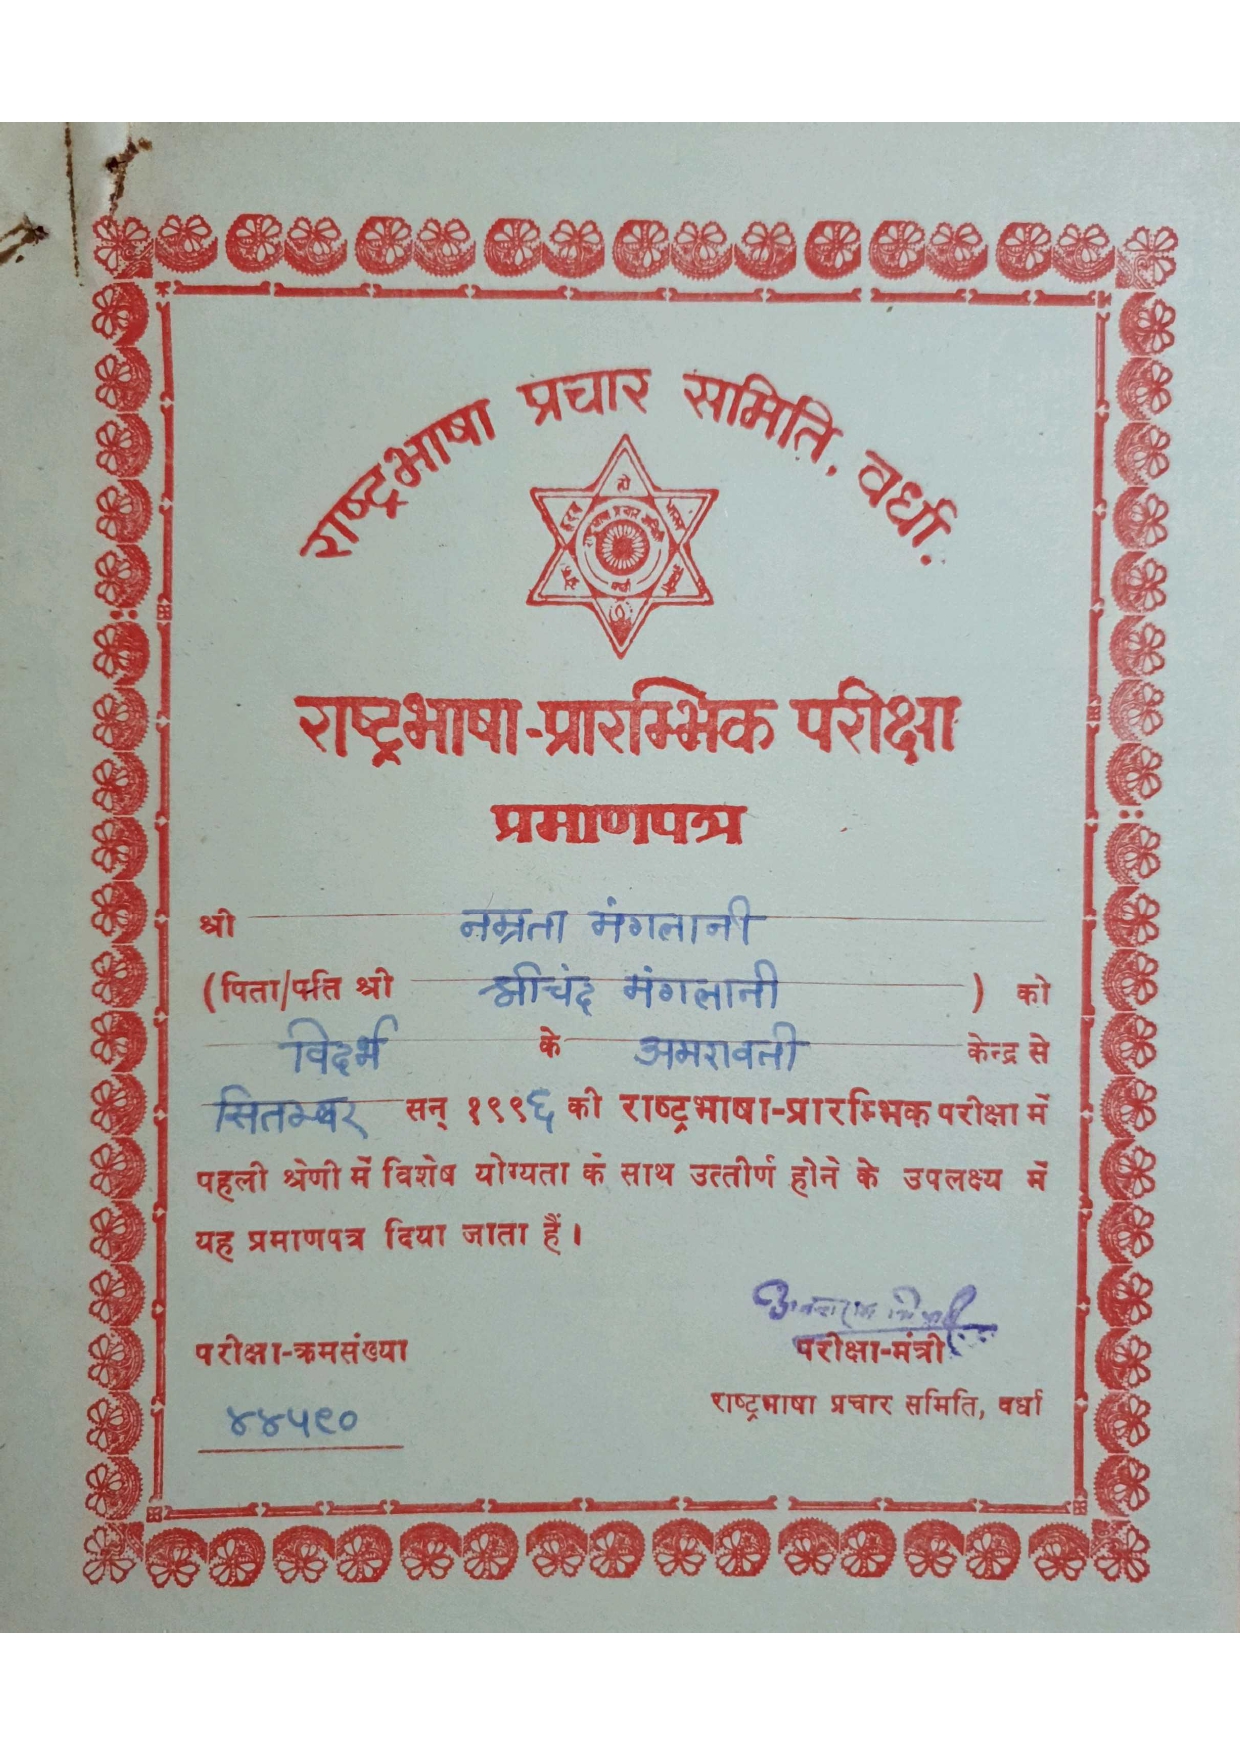 राष्ट्रभाषा प्रचार समिति, वर्धा.
हो
वर्धा
राष्ट्रभाषा-प्रारम्भिक परीक्षा
प्रमाणपत्र
श्री नम्रता मंगलानी
(पिता/पति श्री श्रीचंद मंगलानी ) को
विदर्भ के अमरावती केन्द्र से
सितम्बर सन् १९९६ की राष्ट्रभाषा-प्रारम्भिक परीक्षा में
पहली श्रेणी में विशेष योग्यता के साथ उत्तीर्ण होने के उपलक्ष्य में
यह प्रमाणपत्र दिया जाता हैं।
परीक्षा-क्रमसंख्या
४४५९०
परीक्षा-मंत्री
राष्ट्रभाषा प्रचार समिति, वर्धा